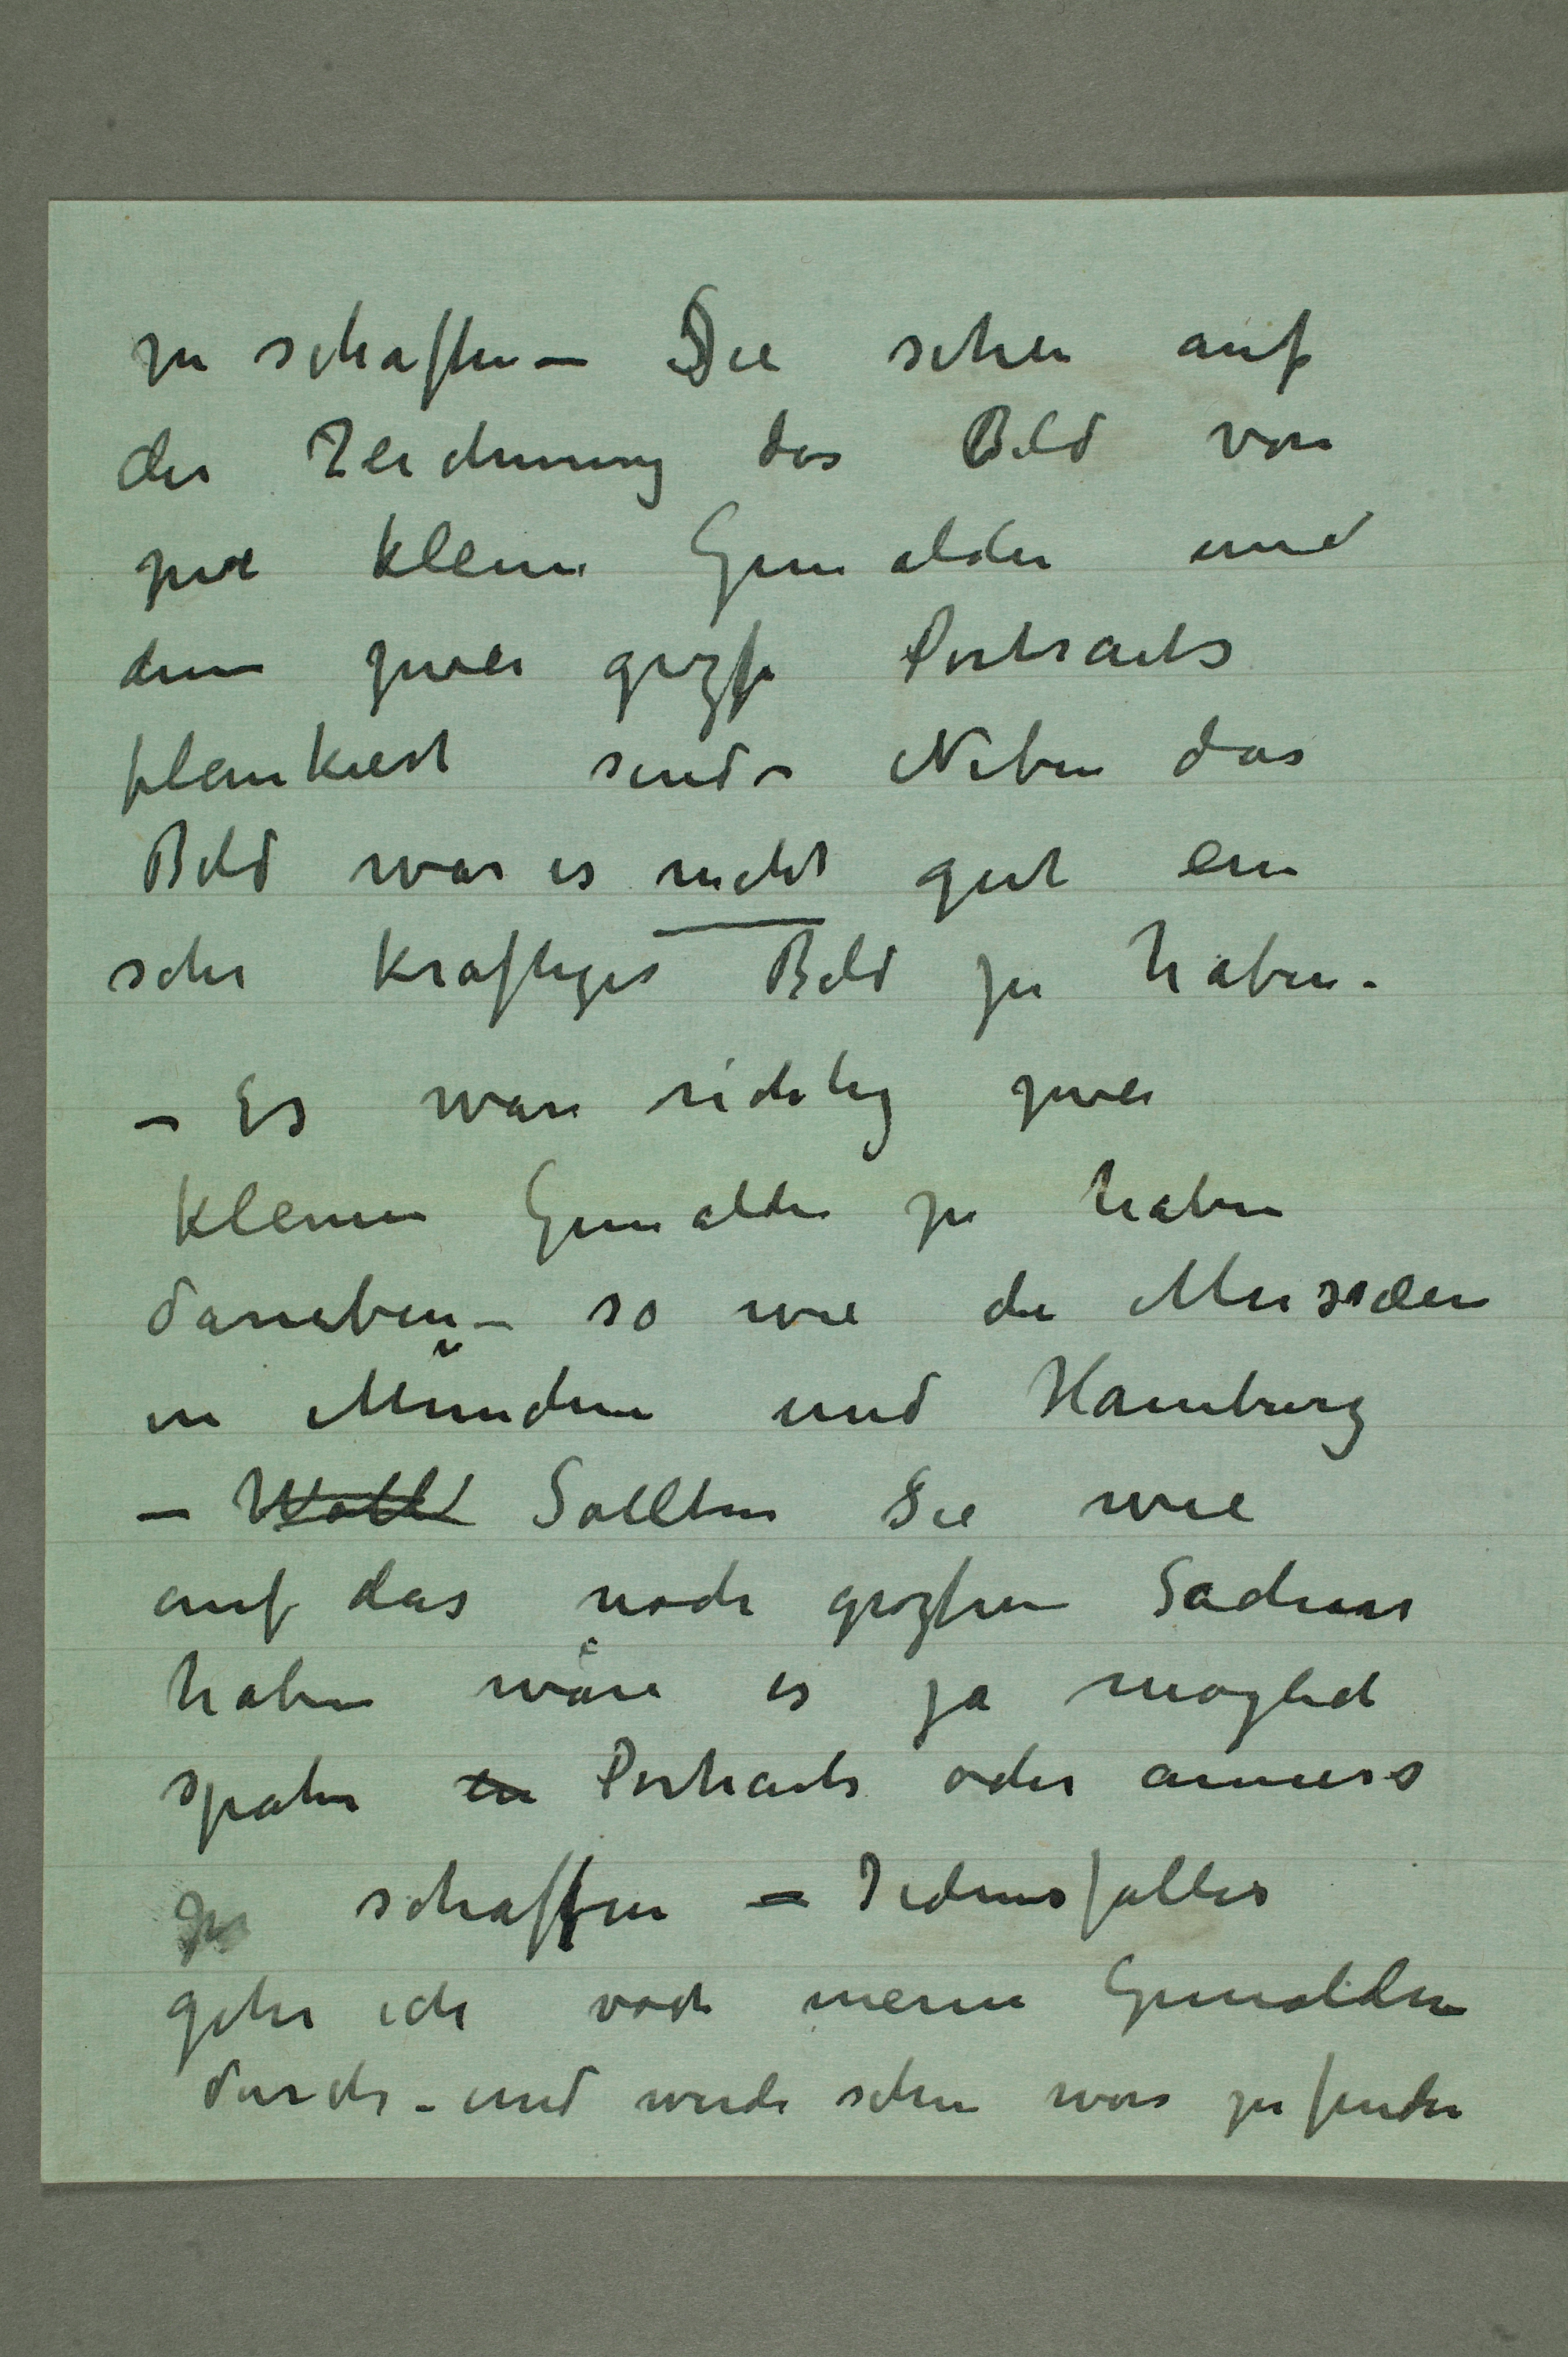 zu schaffen – Sie sehen auf
der Zeichnung das Bild von
zwe kleine Gemälder und
denn zwei grosse Portraits
flankiert sind – Neben das
Bild war es nicht gut ein
sehr kräftiges Bild zu haben.
– Es war richtig zwei
kleinen Gemälde zu haben
daneben – so wie die Musæen
in München und Hamburg
– Wollt Sollten Sie wie
auf das noch grossen Sachen
haben wäre es ja moglich
später en Portraits oder anneres
zu schaffen – Jedensfalles
gehe ich noch meine Gemälden
durch – und werde sehen was zu finden